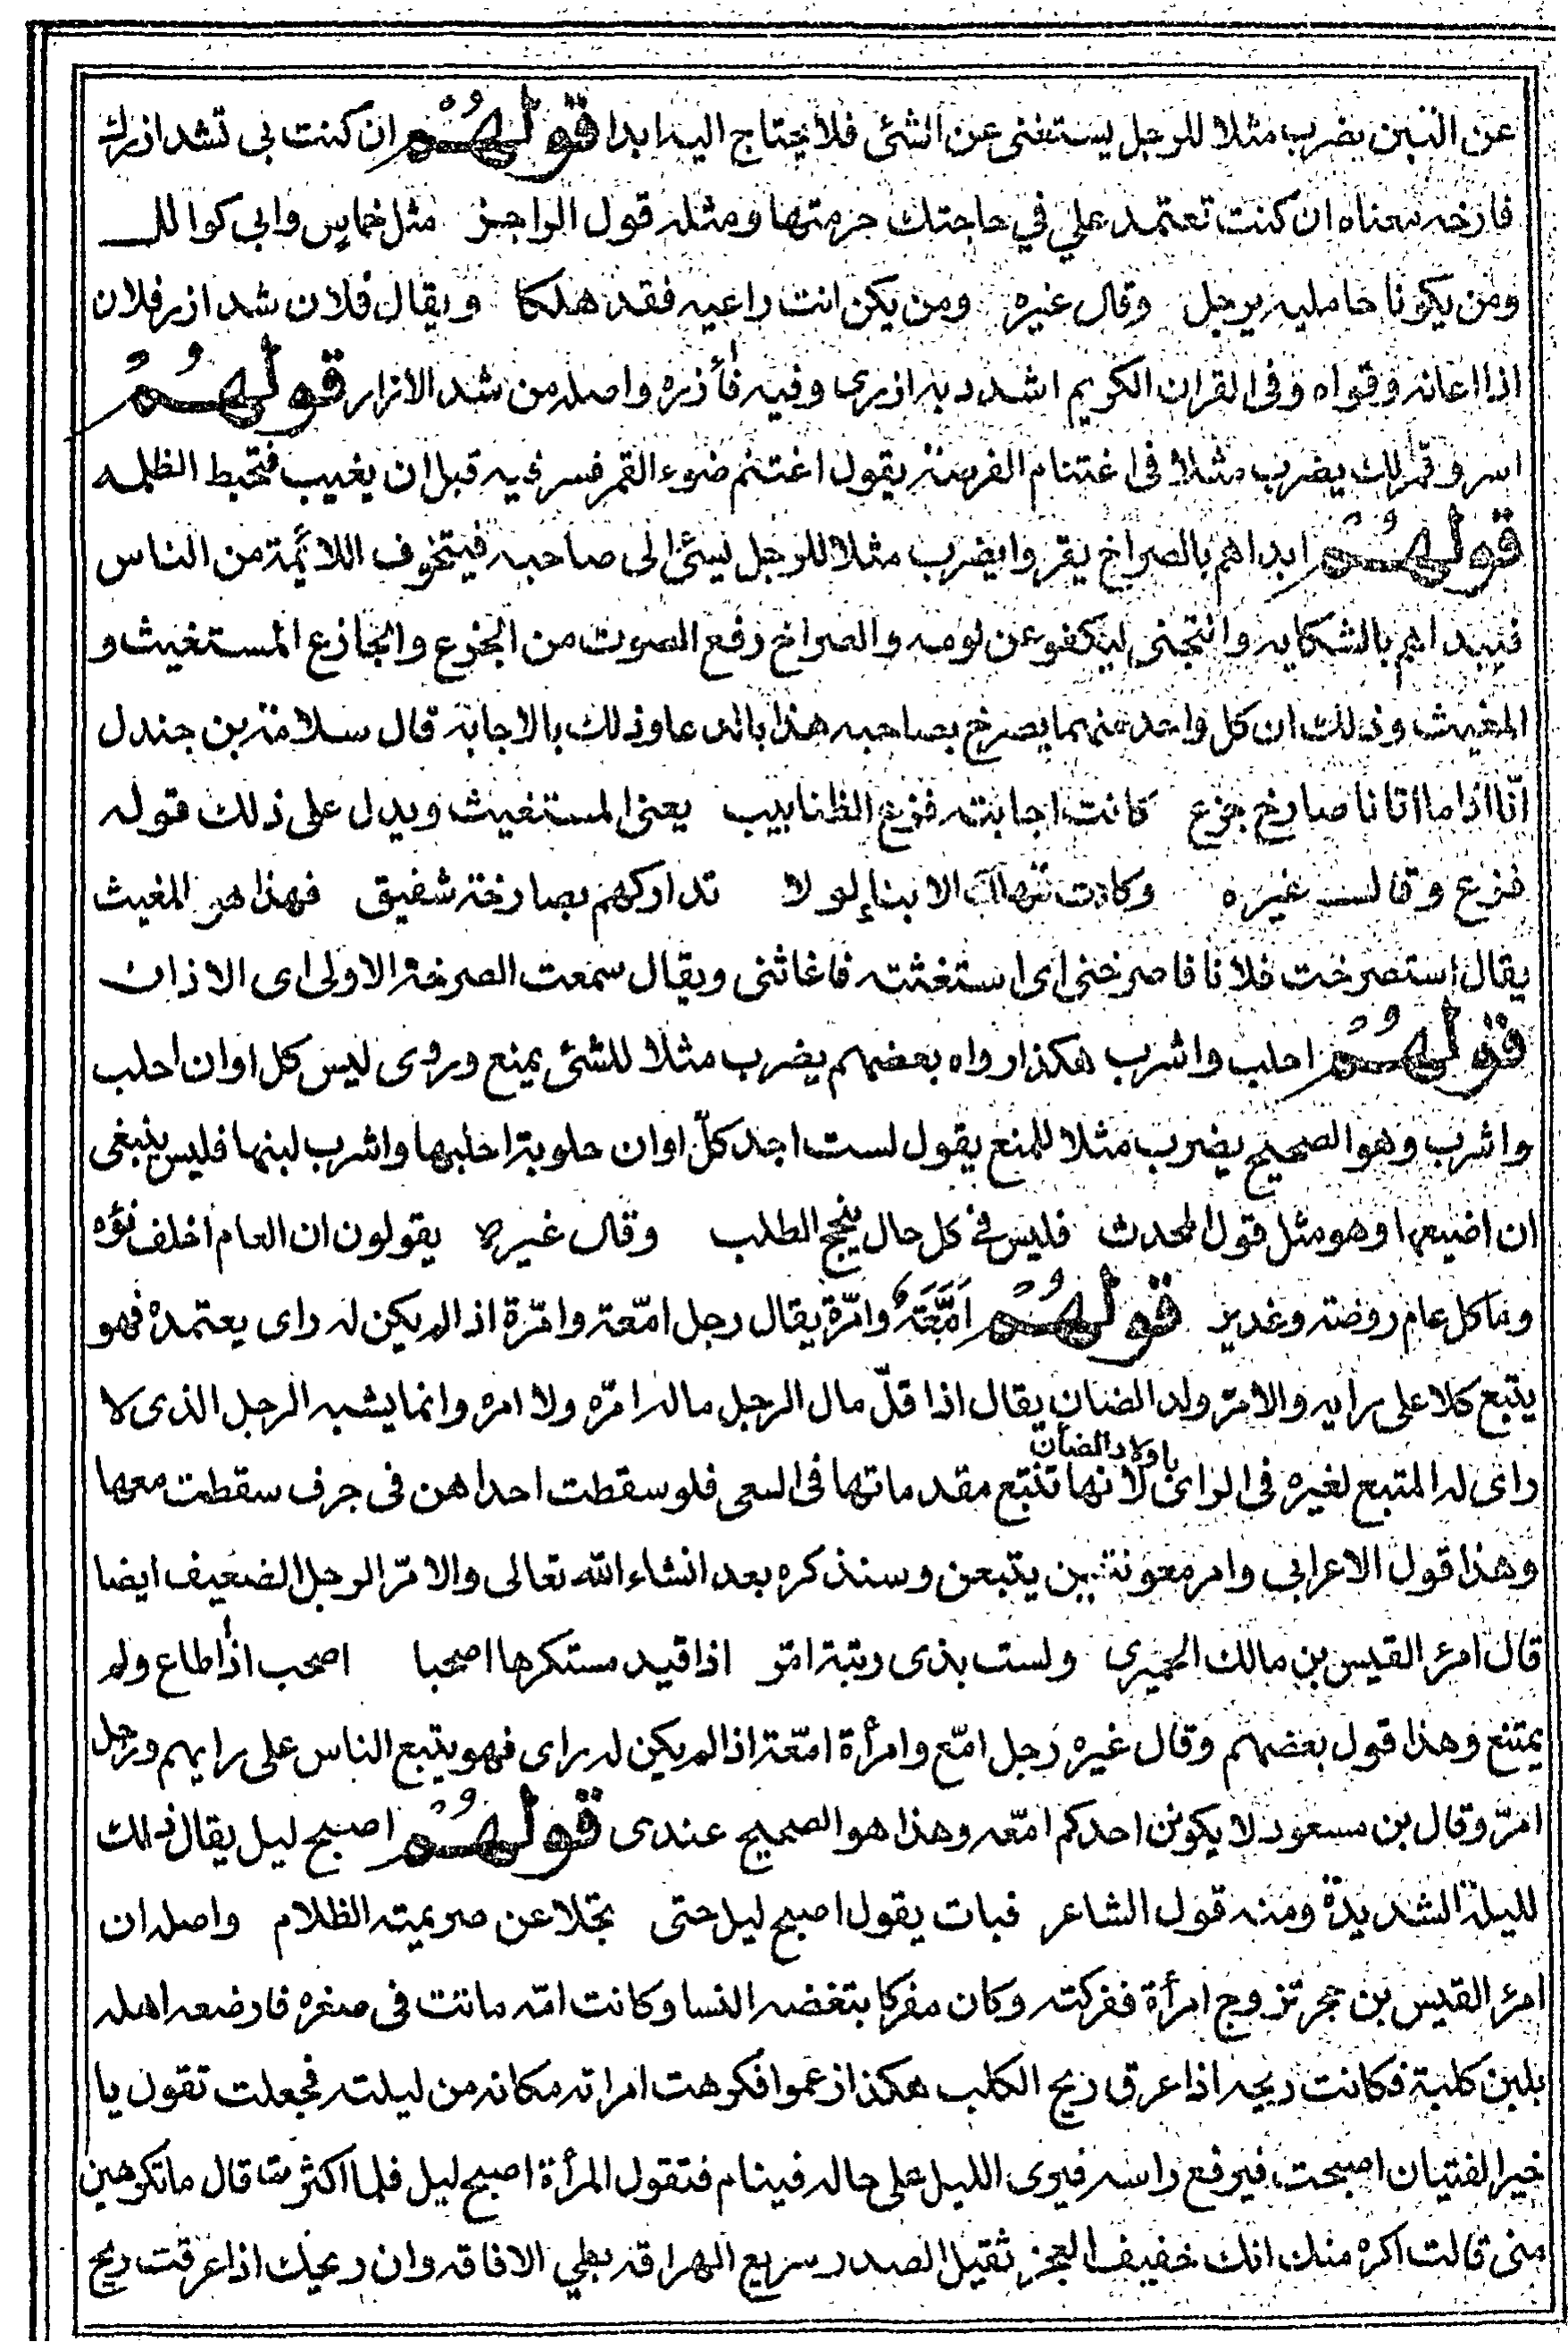 عن التبن يضرب مثلا للرجل يستغنى عن الشئ فلا يحتاج اليه ابدا قولهم ان كنت بى تشد ازرك
فارخه معناه ان كنت تعتمد علي في حاجتك حرمتها ومثله قول الراجز مثل خماس وابي كوالل
ومن يكونا حامليه يرجل وقال غيره ومن يكن انت راعيه فقد هلكا ويقال فلان شد ازر فلان
اذا اعانه وقواه وفى القران الكريم اشدد به ازرى وفيه فأزره واصله من شد الازار قولهم
اسر وقمر لك يضرب مثلا فى اغتنام الفرصة يقول اغتنم ضوء القمر فسر فيه قبل ان يغيب فتخبط الظلمه
قولهم ابداهم بالصراخ يقروا يضرب مثلا للرجل يسئ الى صاحبه فيتخوف اللائمة من الناس
فيبداهم بالشكايه والتجنى ليكفو عن لومه والصراخ رفع الصوت من الجزع والجازع المستغيث و
المغيث وذلك ان كل واحد منهما يصرخ بصاحبه هذا بالدعا وذلك بالاجابة قال سلامة بن جندل
انّا اذا ما اتانا صارخ جزع كانت اجابته فزع الظنابيب يعنى المستغيث ويدل على ذلك قوله
فزع وقالـ غيره وكادت تهالك الابناء لولا تداركهم بصارخة شفيق فهذا هو المغيث
يقال استصرخت فلانا فاصرخنى اى استغثته فاغاثنى ويقال سمعت الصرخة الاولى اى الاذان
قولهم احلب واشرب هكذا رواه بعضهم يضرب مثلا للشئ يمنع وروى ليس كل اوان احلب
واشرب وهو الصحيح يضرب مثلا للمنع يقول لست اجد كلّ اوان حلوبة احلبها واشرب لبنها فليس ينبغى
ان اضيعها وهو مثل قول المحدث فليس فى كل حال ينجح الطلب وقال غيره يقولون ان العام اخلف نؤه
وما كل عام روضة وغدير قولهم اِمَّعَةٌ وامّرة يقال رجل امّعة وامّرة اذا لم يكن له راى يعتمده فهو
يتبع كلا على رايه والامّر ولد الضان يقال اذا قلّ مال الرجل ماله امّره ولا امر وانما يشبه الرجل الذى لا
راى له المتبع لغيره فى الراى باولاد الضأن لانها تتبع مقدماتها فى السعى فلو سقطت احداهن فى جرف سقطت معها
وهذا قول الاعرابى وامر معونتين يتبعن وسنذكره بعد انشاء الله تعالى والامّر الرجل الضعيف ايضا
قال امرؤ القيس بن مالك الحميرى ولست بذى رثية امّر اذا قيد مستكرها اصحبا اصحب اذا اطاع ولم
يمتنع وهذا قول بعضهم وقال غيره رجل امّع وامرأة امّعة اذا لم يكن له راى فهو يتبع الناس على رايهم ورجل
امّر وقال بن مسعود لا يكونن احدكم امّعه وهذا هو الصحيح عندى قولهم اصبح ليل يقال ذلك
لليلة الشديدة ومنه قول الشاعر فبات يقول اصبح ليل حتى تجلا عن صريمته الظلام واصله ان
امرؤ القيس بن حجر تزوج امرأة ففركته وكان مفركا بتغضه النسا وكانت امّه ماتت فى صغره فارضعه اهله
بلبن كلبة فكانت ريحه اذا عرق ريح الكلب هكذا زعموا فكرهت امراته مكانه من ليلته فجعلت تقول يا
خير الفتيان اصبحت فيرفع راسه فيرى الليل على حاله فينام فتقول المرأة اصبح ليل فلما اكثرت قال ما تكرهين
منى قالت اكره منك انك خفيف العجز ثقيل الصدر سريع الهراقه بطي الافاقه وان ريحك اذا عرقت ريح